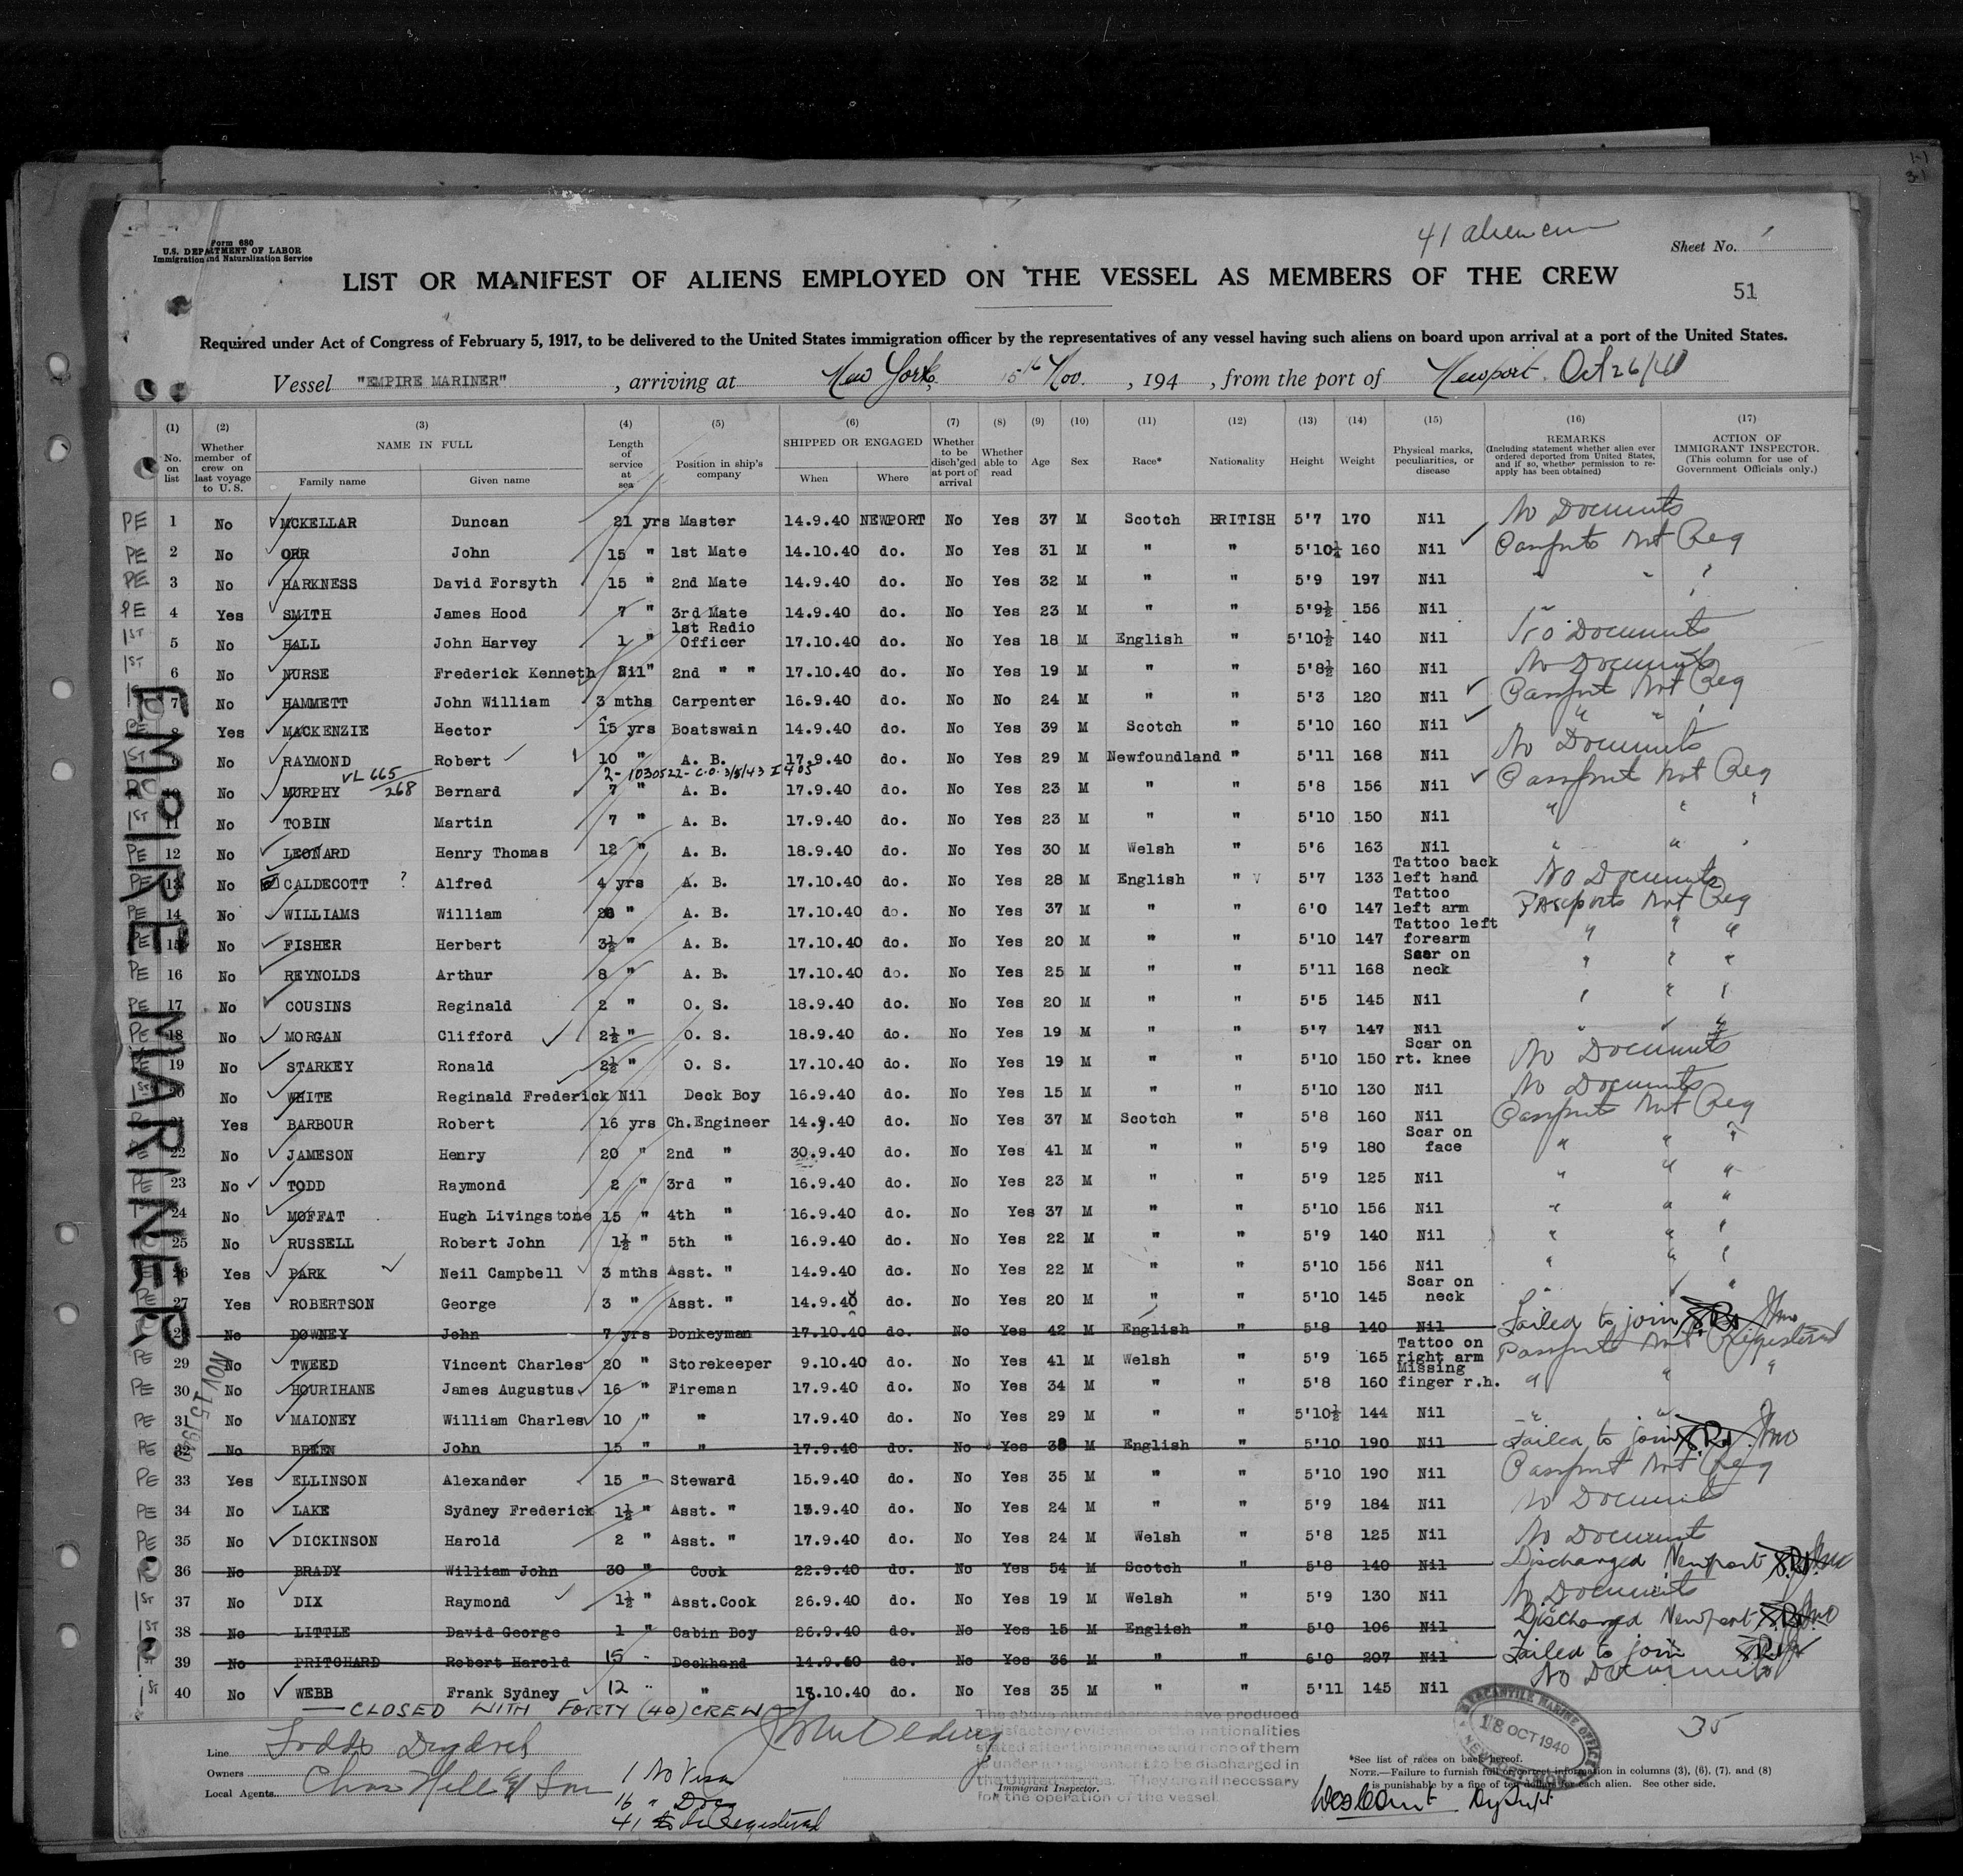 1-1
3-1
41 alien crew
Form 680
U.S. DEPARTMENT OF LABOR
Immigration and Naturalization Service
Sheet No. 1
LIST OR MANIFEST OF ALIENS EMPLOYED ON THE VESSEL AS MEMBERS OF THE CREW
51
Required under Act of Congress of February 5, 1917, to be delivered to the United States immigration officer by the representatives of any vessel having such aliens on board upon arrival at a port of the United States.
Vessel "EMPIRE MARINER", arriving at New York, 15th Nov., 194 , from the port of Newport. Oct 26/40
(1) (2) (3) (4) (5) (6) (7) (8) (9) (10) (11) (12) (13) (14) (15) (16) (17)
No. on list Whether member of crew on last voyage to U. S. NAME IN FULL Family name Given name Length of service at sea Position in ship's company SHIPPED OR ENGAGED When Where Whether to be disch'ged at port of arrival Whether able to read Age Sex Race* Nationality Height Weight Physical marks, peculiarities, or disease REMARKS (Including statement whether alien ever ordered deported from United States, and if so, whether permission to reapply has been obtained) ACTION OF IMMIGRANT INSPECTOR. (This column for use of Government Officials only.)
PE 1 No MCKELLAR Duncan 21 yrs Master 14.9.40 NEWPORT No Yes 37 M Scotch BRITISH 5'7 170 Nil No Documents
PE 2 No ORR John 15 " 1st Mate 14.10.40 do. No Yes 31 M " " 5'10½ 160 Nil Passports Not Req
PE 3 No HARKNESS David Forsyth 15 " 2nd Mate 14.9.40 do. No Yes 32 M " " 5'9 197 Nil " " "
PE 4 Yes SMITH James Hood 7 " 3rd Mate 14.9.40 do. No Yes 23 M " " 5'9½ 156 Nil
1ST 5 No HALL John Harvey 1 " 1st Radio Officer 17.10.40 do. No Yes 18 M English " 5'10½ 140 Nil No Documents
1ST 6 No NURSE Frederick Kenneth Nil" 2nd " " 17.10.40 do. No Yes 19 M " " 5'8½ 160 Nil No Documents
7 No HAMMETT John William 3 mths Carpenter 16.9.40 do. No No 24 M " " 5'3 120 Nil Passport Not Req
PE 8 Yes MACKENZIE Hector 15 yrs Boatswain 14.9.40 do. No Yes 39 M Scotch " 5'10 160 Nil " " "
1ST 9 No RAYMOND Robert 10 " A. B. 17.9.40 do. No Yes 29 M Newfoundland " 5'11 168 Nil No Documents
VL 665/268 2-1030522- C.O. 3/5/43 I 405
10 No MURPHY Bernard 7 " A. B. 17.9.40 do. No Yes 23 M " " 5'8 156 Nil Passport Not Req
1ST 11 No TOBIN Martin 7 " A. B. 17.9.40 do. No Yes 23 M " " 5'10 150 Nil " " "
PE 12 No LEONARD Henry Thomas 12 " A. B. 18.9.40 do. No Yes 30 M Welsh " 5'6 163 Nil " " "
PE 13 No CALDECOTT ? Alfred 4 yrs A. B. 17.10.40 do. No Yes 28 M English " 5'7 133 Tattoo back left hand No Documents
PE 14 No WILLIAMS William 20 " A. B. 17.10.40 do. No Yes 37 M " " 6'0 147 Tattoo left arm Passports Not Req
PE 15 No FISHER Herbert 3½ " A. B. 17.10.40 do. No Yes 20 M " " 5'10 147 Tattoo left forearm " " "
PE 16 No REYNOLDS Arthur 8 " A. B. 17.10.40 do. No Yes 25 M " " 5'11 168 Scar on neck " " "
PE 17 No COUSINS Reginald 2 " O. S. 18.9.40 do. No Yes 20 M " " 5'5 145 Nil " " "
PE 18 No MORGAN Clifford 2½ " O. S. 18.9.40 do. No Yes 19 M " " 5'7 147 Nil " " "
PE 19 No STARKEY Ronald 2½ " O. S. 17.10.40 do. No Yes 19 M " " 5'10 150 Scar on rt. knee No Documents
1ST 20 No WHITE Reginald Frederick Nil Deck Boy 16.9.40 do. No Yes 15 M " " 5'10 130 Nil No Documents
PE 21 Yes BARBOUR Robert 16 yrs Ch.Engineer 14.9.40 do. No Yes 37 M Scotch " 5'8 160 Nil Passports Not Req
PE 22 No JAMESON Henry 20 " 2nd " 30.9.40 do. No Yes 41 M " " 5'9 180 Scar on face " " "
PE 23 No TODD Raymond 2 " 3rd " 16.9.40 do. No Yes 23 M " " 5'9 125 Nil " " "
24 No MOFFAT Hugh Livingstone 15 " 4th " 16.9.40 do. No Yes 37 M " " 5'10 156 Nil " " "
25 No RUSSELL Robert John 1½ " 5th " 16.9.40 do. No Yes 22 M " " 5'9 140 Nil " " "
26 Yes PARK Neil Campbell 3 mths Asst. " 14.9.40 do. No Yes 22 M " " 5'10 156 Nil " " "
PE 27 Yes ROBERTSON George 3 " Asst. " 14.9.40 do. No Yes 20 M " " 5'10 145 Scar on neck " " "
28 No DOWNEY John 7 yrs Donkeyman 17.10.40 do. No Yes 42 M English " 5'8 140 Nil Failed to join
PE 29 No TWEED Vincent Charles 20 " Storekeeper 9.10.40 do. No Yes 41 M Welsh " 5'9 165 Tattoo on right arm Passports Not Registered
PE 30 No HOURIHANE James Augustus 16 " Fireman 17.9.40 do. No Yes 34 M " " 5'8 160 Missing finger r.h. " " "
PE 31 No MALONEY William Charles 10 " " 17.9.40 do. No Yes 29 M " " 5'10½ 144 Nil " "
PE 32 No BREEN John 15 " " 17.9.40 do. No Yes 38 M English " 5'10 190 Nil Failed to join
PE 33 Yes ELLINSON Alexander 15 " Steward 15.9.40 do. No Yes 35 M " " 5'10 190 Nil Passport Not Req
PE 34 No LAKE Sydney Frederick 1½ " Asst. " 13.9.40 do. No Yes 24 M " " 5'9 184 Nil No Documents
PE 35 No DICKINSON Harold 2 " Asst. " 17.9.40 do. No Yes 24 M Welsh " 5'8 125 Nil No Documents
36 No BRADY William John 30 " Cook 22.9.40 do. No Yes 54 M Scotch " 5'8 140 Nil Discharged Newport
1ST 37 No DIX Raymond 1½ " Asst.Cook 26.9.40 do. No Yes 19 M Welsh " 5'9 130 Nil No Documents
1ST 38 No LITTLE David George 1 " Cabin Boy 26.9.40 do. No Yes 15 M English " 5'0 106 Nil Discharged Newport
39 No PRITCHARD Robert Harold 15 " Deckhand 14.9.40 do. No Yes 36 M " " 6'0 207 Nil Failed to join
1ST 40 No WEBB Frank Sydney 12 " " 18.10.40 do. No Yes 35 M " " 5'11 145 Nil No Documents
EMPIRE MARINER
NOV 15 1940
CLOSED WITH FORTY (40) CREW
The above named persons have produced
satisfactory evidence of the nationalities
stated after their names and none of them
is under an agreement to be discharged in
the United States. They are all necessary
for the operation of the vessel.
MERCANTILE MARINE OFFICE
18 OCT 1940
NEWPORT, MON
35
Line
Owners
Local Agents Chas Hill & Son
Immigrant Inspector.
1 No Visa
16 " Doc
41 to be Registered
*See list of races on back hereof.
NOTE.—Failure to furnish full or correct information in columns (3), (6), (7), and (8)
is punishable by a fine of ten dollars for each alien. See other side.
Dy Supt